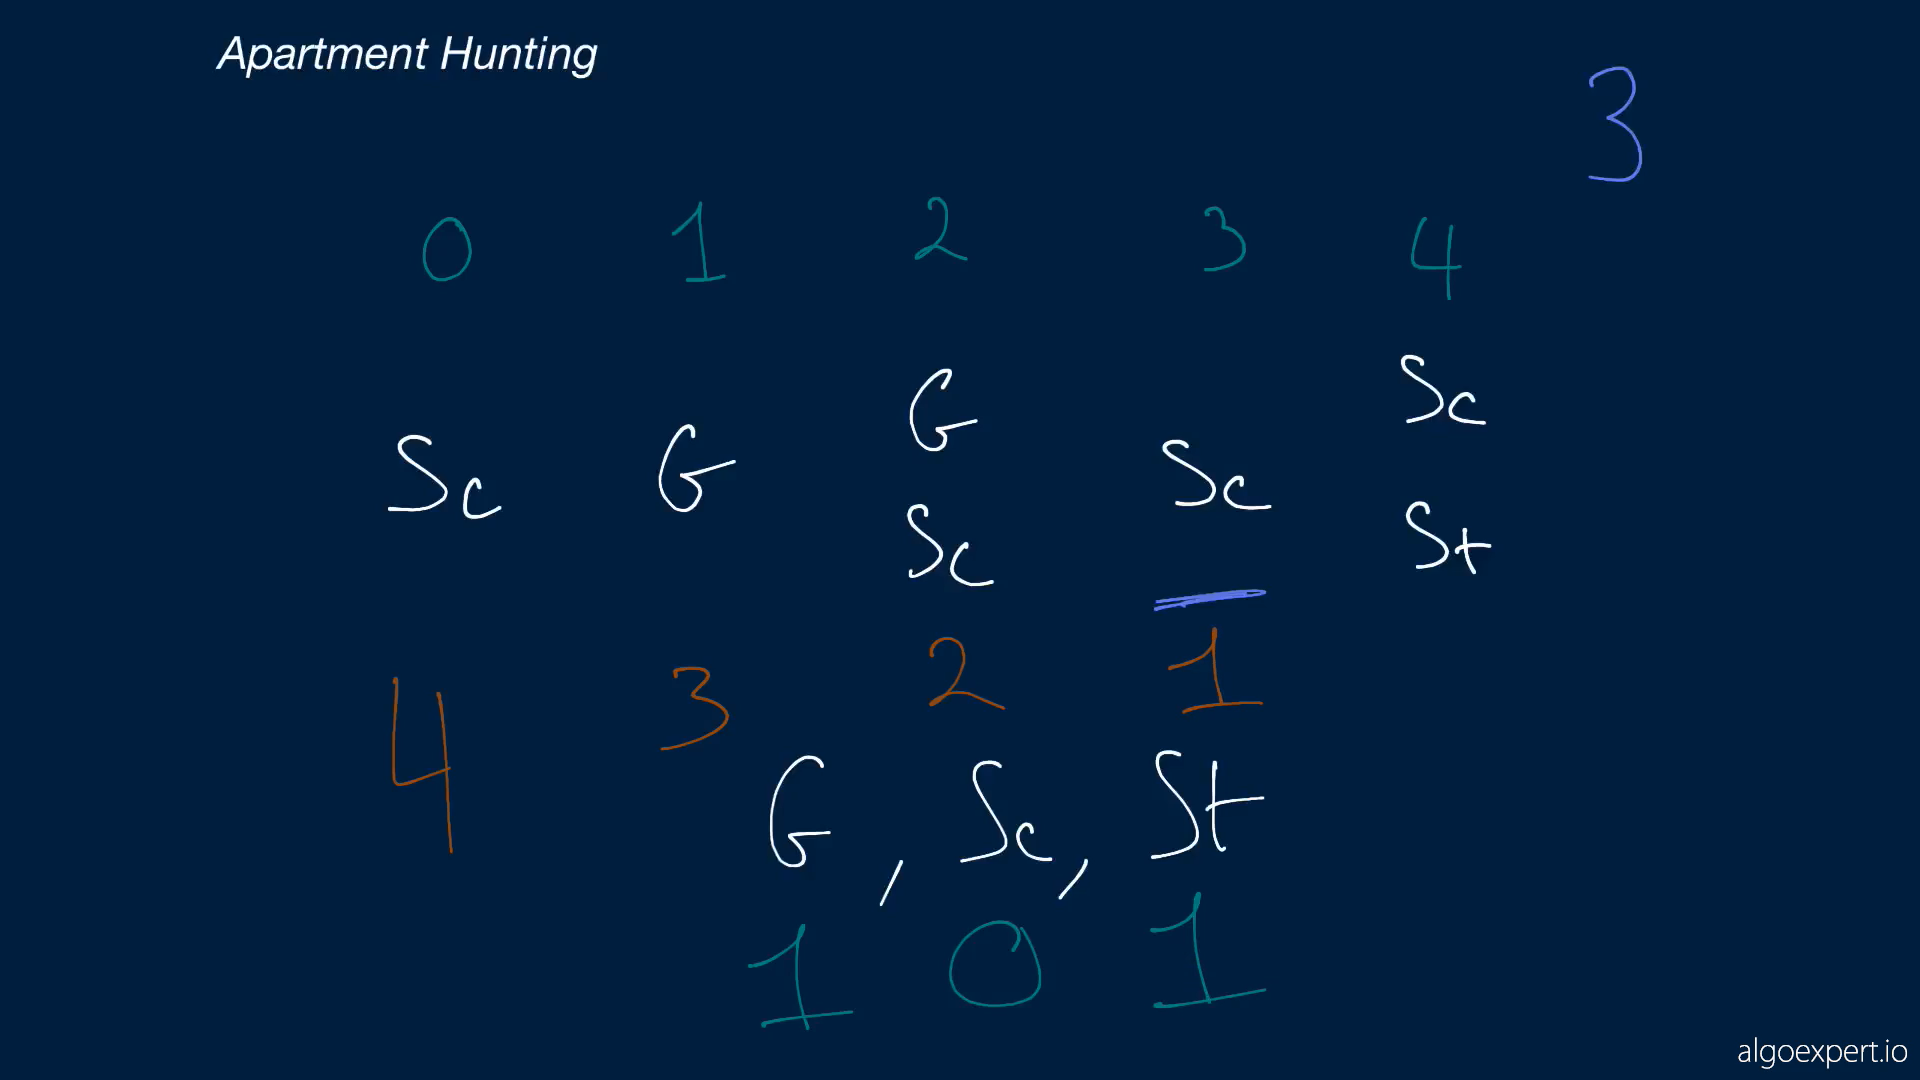 Apartment Hunting
3
0 1 2 3 4
G Sc
Sc G Sc
Sc St
4 3 2 1
G, Sc, St
1 0 1
algoexpert.io